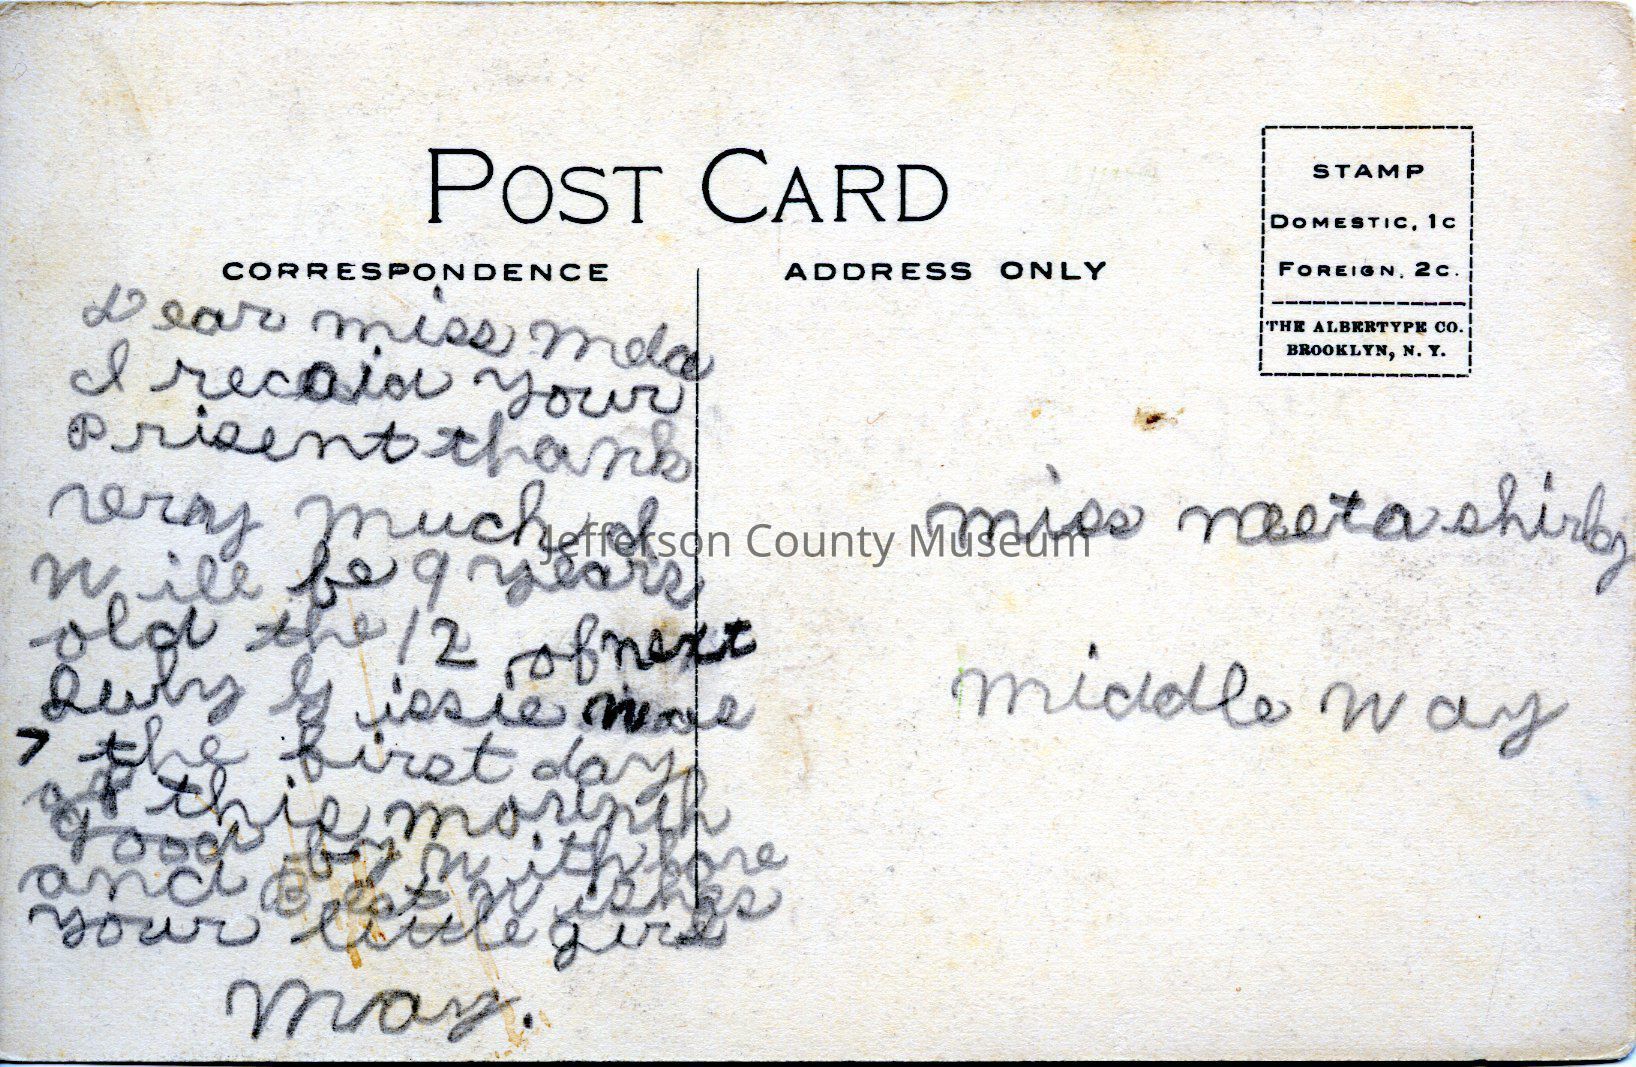 POST CARD
CORRESPONDENCE
ADDRESS ONLY
STAMP
DOMESTIC, 1C
FOREIGN, 2C.
THE ALBERTYPE CO.
BROOKLYN, N. Y.
Dear miss
I recaid your
Prisent thank
very much I
Will be 9 years
old the 12 of next
July Gissie was
7 the first day
of this month
good by with love
and Best wishes
your little girl
May.
miss neeta shirly
middle way
Jefferson County Museum